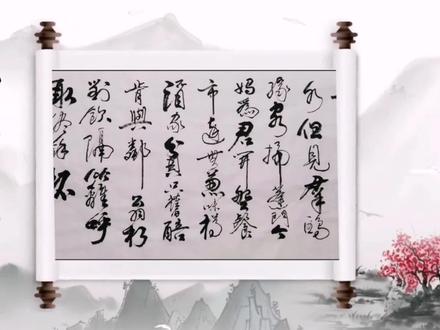 水但見羣鷗
緣客掃蓬門今
始為君開盤餐
市遠無兼味樽
酒家貧只舊醅
肯與鄰翁相
對飲隔籬呼
取盡餘杯